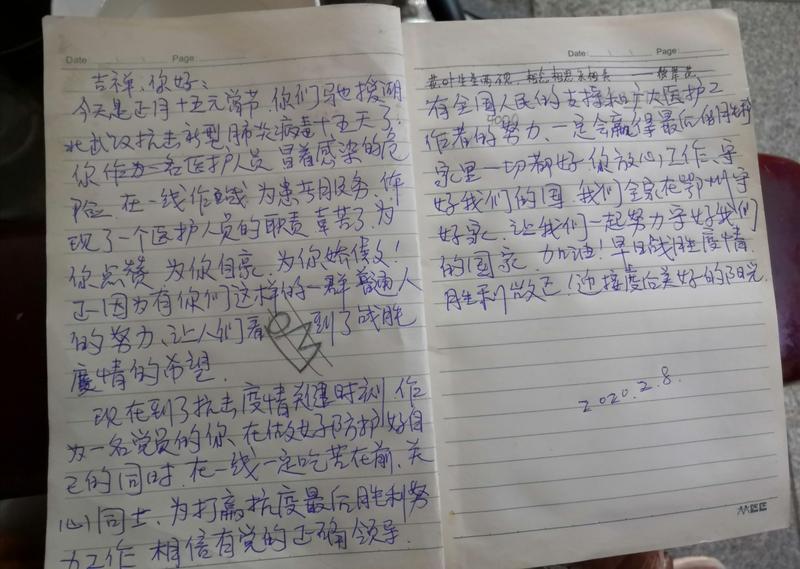 Date:
Page:
吉祥,你好:
今天是正月十五元宵节,你们驰援湖
北武汉抗击新型肺炎病毒十五天了,
你作为一名医护人员冒着感染的危
险,在一线作战为患者服务,体
现了一个医护人员的职责,辛苦了,为
你点赞,为你自豪,为你骄傲!
正因为有你们这样的一群普通人
的努力,让人们看到了战胜
疫情的希望.
现在到了抗击疫情关键时刻,作
为一名党员的你,在做好防护好自
己的同时,在一线一定吃苦在前,关
心同志,为打赢抗疫最后胜利努
力工作,相信有党的正确领导.
Date:
Page:
有全国人民的支援和广大医护工
作者的努力,一定会赢得最后的胜利
家里一切都好,你放心工作,守
好我们的国,我们全家在鄂州守
好家,让我们一起努力守好我们
的国家,加油!早日战胜疫情.
胜利散已!迎接疫后美好的阳光.
2020.2.8.